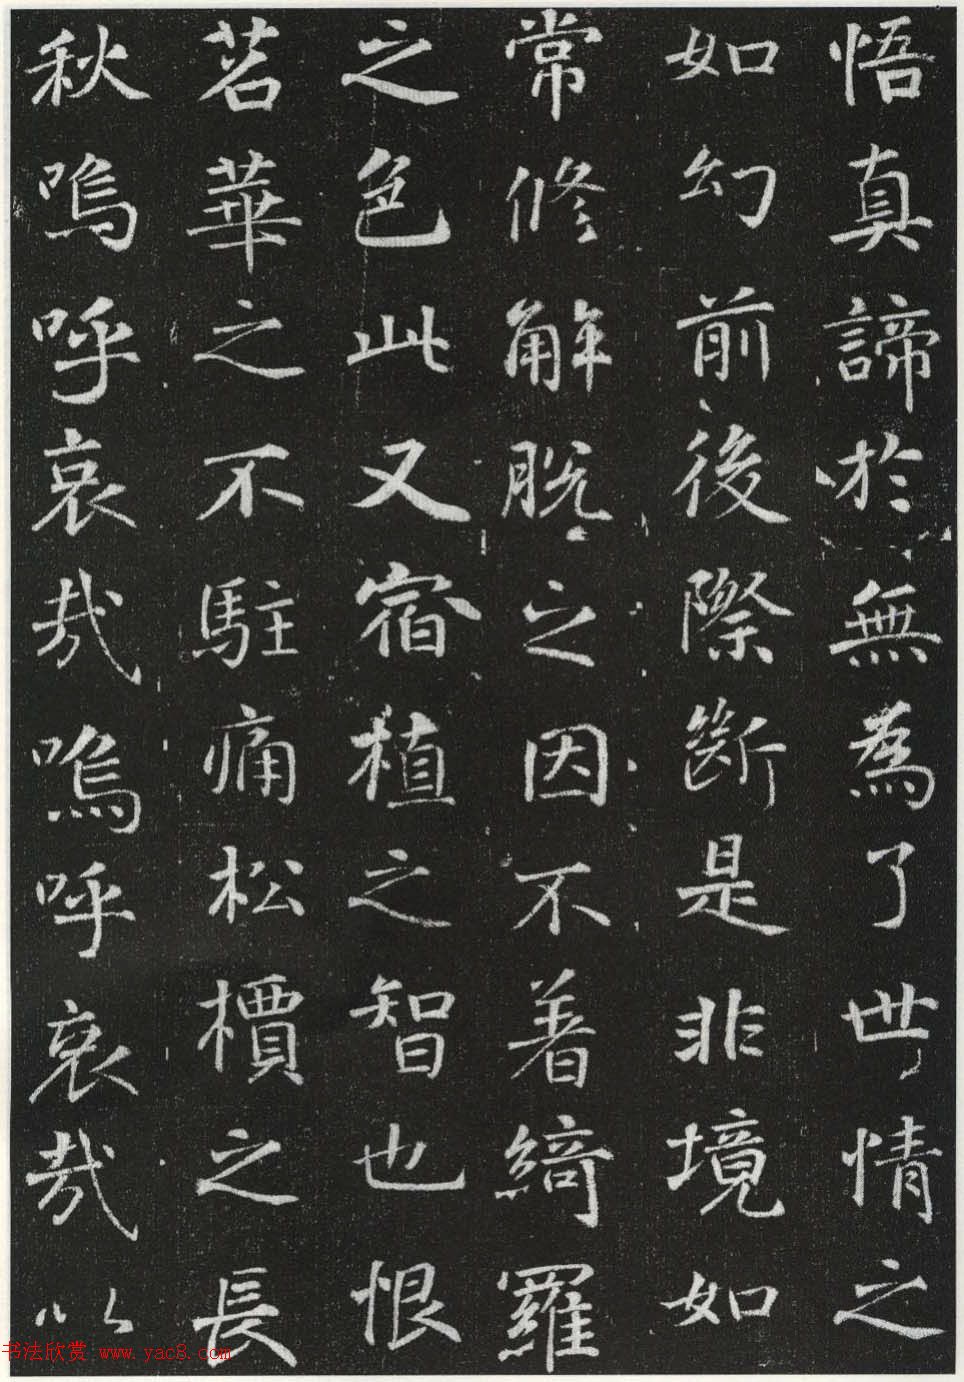 悟真諦於無為了世情之
如幻前後際斷是非境如
常修解脫之因不著綺羅
之色此又宿植之智也恨
茗華之不駐痛松檟之長
秋嗚呼哀哉嗚呼哀哉以
书法欣赏 www.yac8.com